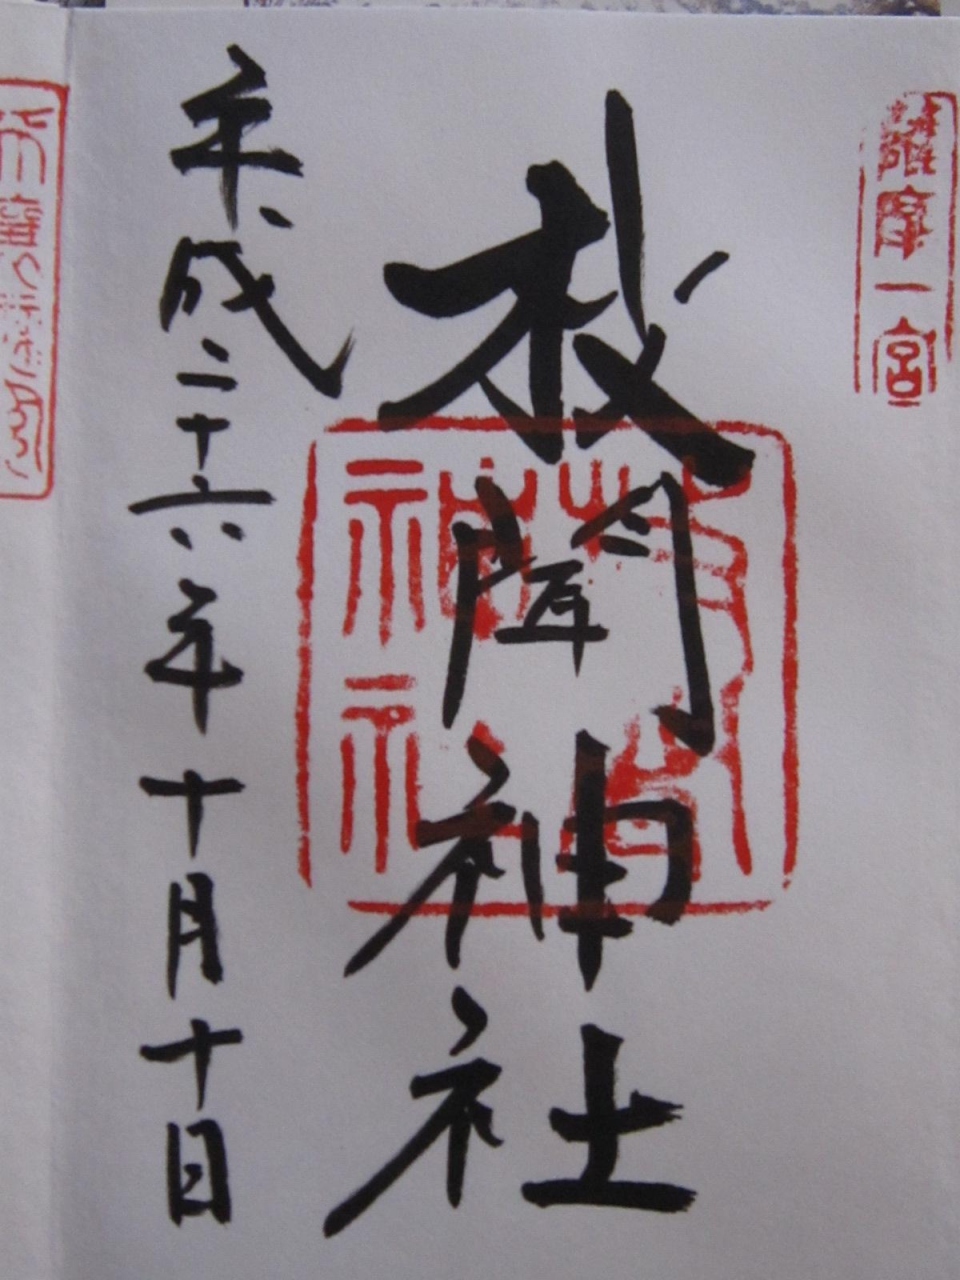 薩摩一宮
枚聞神社
枚聞
神社
平成二十六年十月十日